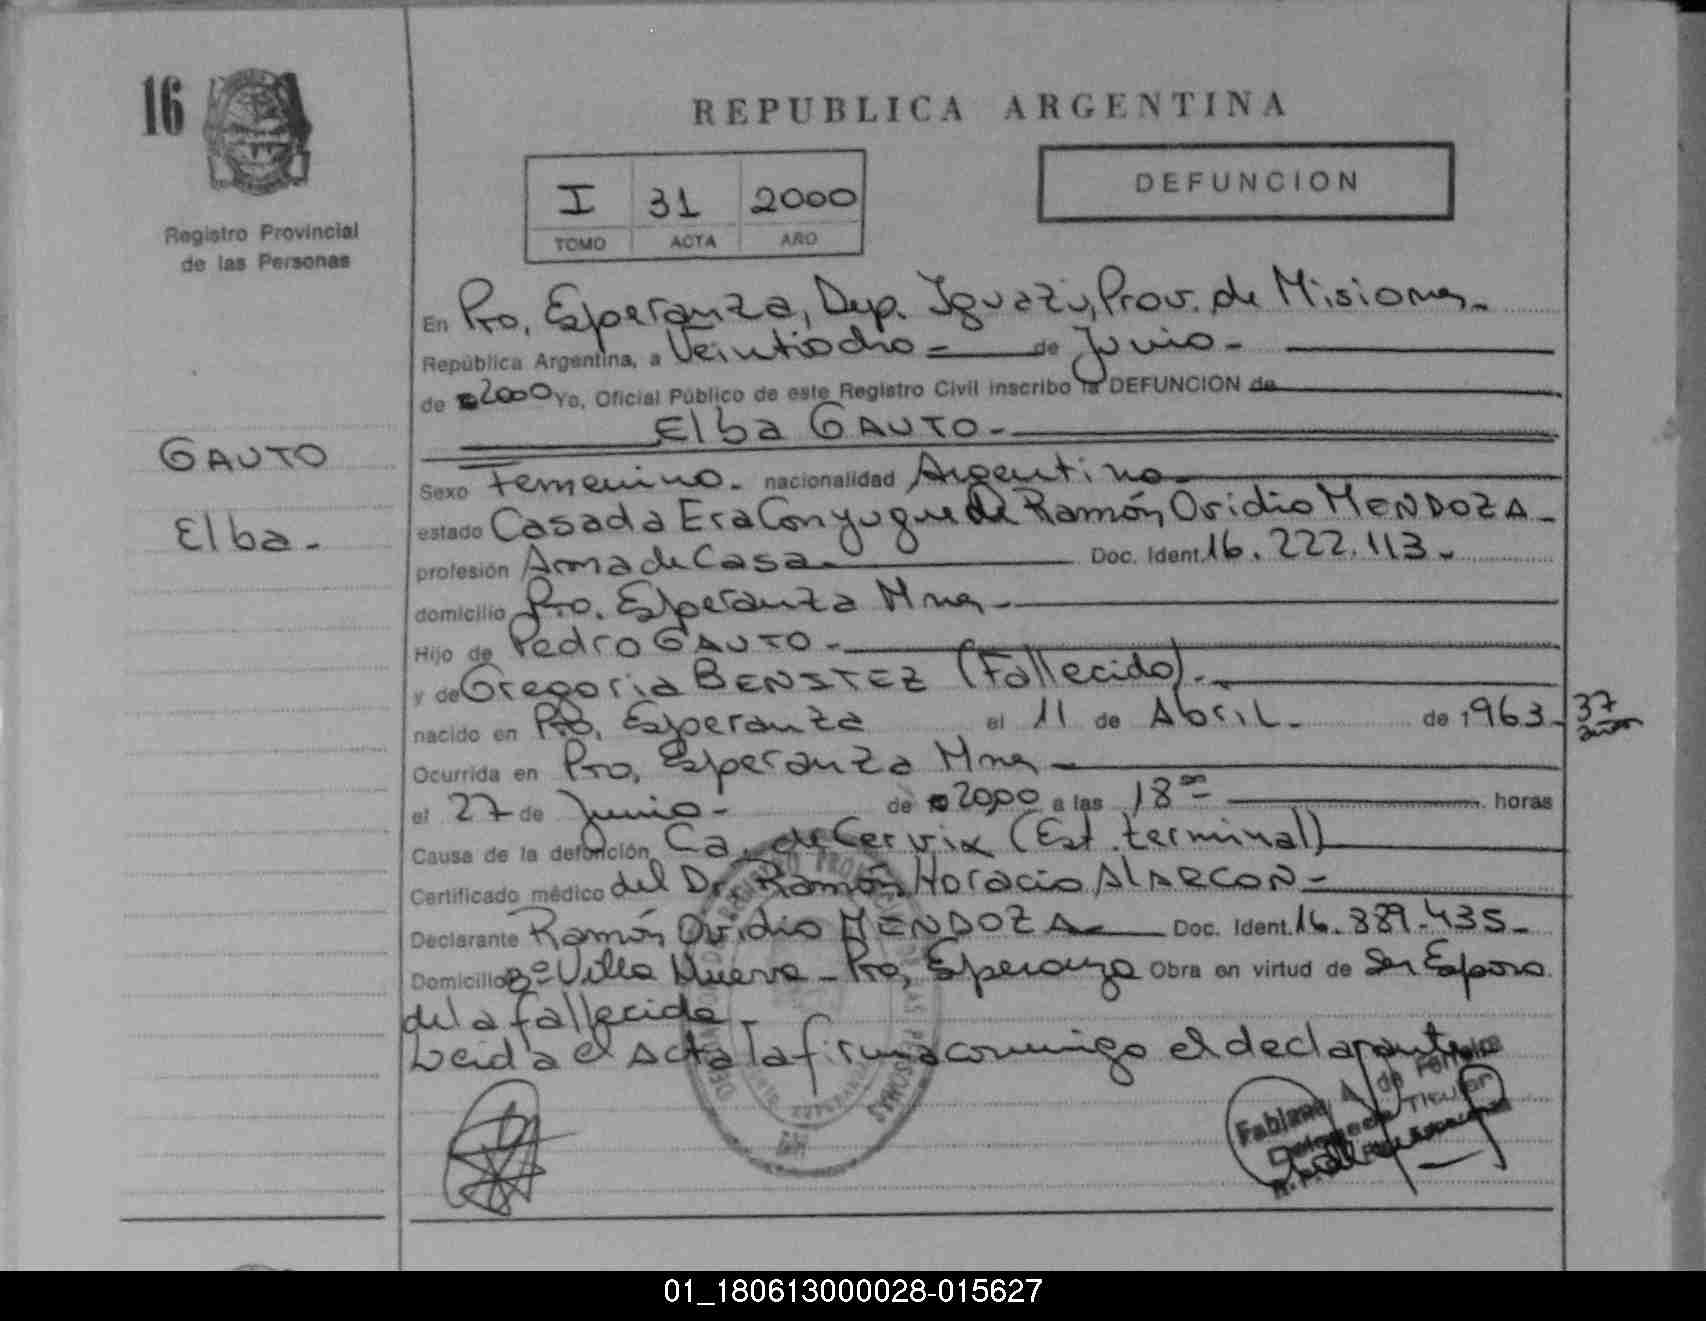 16
REPUBLICA ARGENTINA
I 31 2000
TOMO ACTA AÑO
DEFUNCION
Registro Provincial
de las Personas
En Pto, Esperanza, Dep. Iguazú, Prov. de Misiones-
República Argentina, a Veintiocho - de Junio -
de 2000 Yo, Oficial Público de este Registro Civil inscribo la DEFUNCION de
Elba GAUTO-
GAUTO
Elba-
Sexo Femenino- nacionalidad Argentina-
estado Casada Era Conyugue de Ramón Ovidio MENDOZA-
profesión Ama de Casa- Doc. Ident. 16.222.113-
domicilio Pto. Esperanza Mnes-
Hijo de Pedro GAUTO-
y de Gregoria BENITEZ (Fallecido)-
nacido en Pto, Esperanza el 11 de Abril- de 1963- 37
años
Ocurrida en Pto, Esperanza Mnes-
el 27 de Junio- de 2000 a las 18 horas
Causa de la defunción Ca, de Cervix (Est. terminal)
Certificado médico del Dr. Ramón Horacio AlARCON-
Declarante Ramón Ovidio MENDOZA- Doc. Ident. 16.889.435-
Domicilio Bº Villa Nueva - Pto, Esperanza Obra en virtud de Ser Esposo
de la fallecida-
Leida el Acta la firma conmigo el declarante
Fabiana A. de
Titular
01_180613000028-015627